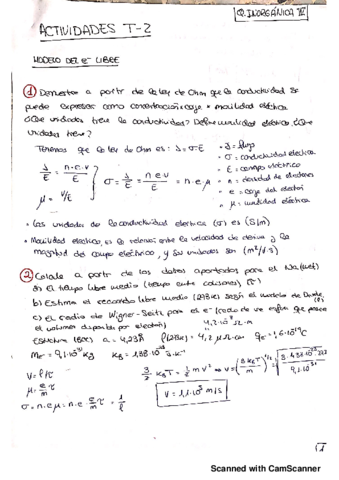 Q. INORGÁNICA III
ACTIVIDADES T-2
MODELO DEL e- LIBRE
① Demostrar a partir de la ley de Ohm que la conductividad se
puede expresar como concentración·carga * movilidad eléctrica
¿Que unidades tiene la conductividad? Define movilidad eléctrica, ¿Que
unidades tiene?
Tenemos que la ley de Ohm es: J = σE
• J = flujo
• σ = conductividad eléctrica
• E = campo eléctrico
• n = densidad de electrones
• e = carga del electrón
• μ = movilidad eléctrica
J/E = n·e·v/E
μ = v/E
σ = J/E = n·e·v/E = n·e·μ
• Las unidades de la conductividad eléctrica (σ) es (S/m)
• Movilidad eléctrica, es la relación entre la velocidad de deriva y la
magnitud del campo eléctrico, y su unidades son (m²/V·s)
② Calcula a partir de los datos aportados para el Na(met)
a) El tiempo libre medio (tiempo entre colisiones) (τ)
b) Estima el recorrido libre medio (298K) según el modelo de Drude (l)
c) El radio de Wigner-Seitz para el e- (radio de una esfera que posee
el volumen disponible por electrón)
4,2·10⁻⁸ Ω·m
Estructura (BCC) a = 4,23Å ρ(298K) = 4,2 μΩ·cm qe = 1,6·10⁻¹⁹C
me- = 9,1·10⁻³¹ Kg KB = 1,38·10⁻²³ J·K⁻¹
v = l/τ
μ = e/m τ
σ = n·e·μ = n·e· e/m τ = 1/ρ
3/2 KBT = 1/2 m v² ⇒ v = (3KBT/m)^1/2
v = 1,1·10⁵ m/s
Scanned with CamScanner